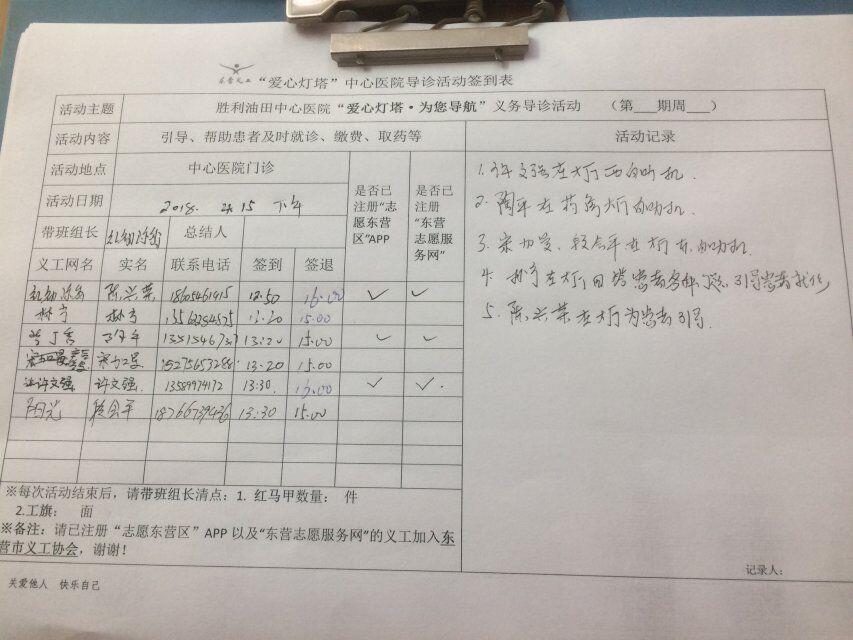 “爱心灯塔”中心医院导诊活动签到表
活动主题 胜利油田中心医院“爱心灯塔·为您导航”义务导诊活动 （第___期周___）
活动内容 引导、帮助患者及时就诊、缴费、取药等 活动记录
活动地点 中心医院门诊 是否已注册“志愿东营区”APP 是否已注册“东营志愿服务网”
活动日期 2018. 下午
带班组长 总结人
义工网名 实名 联系电话 签到 签退
陈兴荣 18605461915 13:50 16:00 ✓ ✓
林宁 林宁 13:20 15.00
丁香 13:20 15.00 ✓ ✓
15275653288 13-20 15.00
许文强 许文强 13589974172 13:30. ✓ ✓.
阳光 段会平 18766739436 13:30 15.00
1.许文强在大厅西自助机.
2.陶军在药房大厅自助机.
3. 在大厅东自助机.
4. 林宁在大厅回答患者各种
5. 陈兴荣在大厅为患者引导.
※每次活动结束后，请带班组长清点：1. 红马甲数量： 件
2.工旗： 面
※备注：请已注册“志愿东营区”APP 以及“东营志愿服务网”的义工加入东
营市义工协会，谢谢！
记录人：
关爱他人 快乐自己